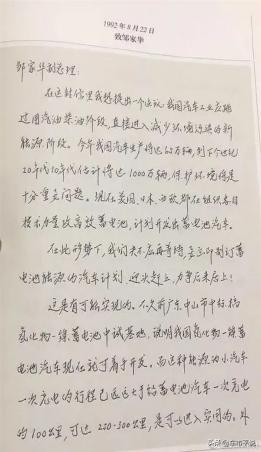 1992年8月22日
致邹家华
邹家华副总理:
在这封信里我想提出一个建议:我国汽车工业应跳
过用汽油柴油阶段,直接进入减少环境污染的新
能源阶段。今年我国汽车生产将达百万辆,到下个世纪
20年代10年代估计将达1000万辆,保护环境将是
十分重大问题。现在美国、日本、西欧都在组织本国
技术力量攻高效蓄电池,计划开发出蓄电池汽车。
在此形势下,我们决不应再等待,要立即制订蓄
电池能源的汽车计划,迎头赶上,力争后来居上!
这是有可能实现的。不久前广东中山市中炬搞
氢化物—镍蓄电池中试基地,说明我国氢化物—镍蓄
电池汽车现在就可着手开发。而这种能源的小汽车
一次充电的行程已远远大于铅蓄电池汽车一次充电
的100公里,可达250-300公里,是可以进入实用的。外
头条@车市不说